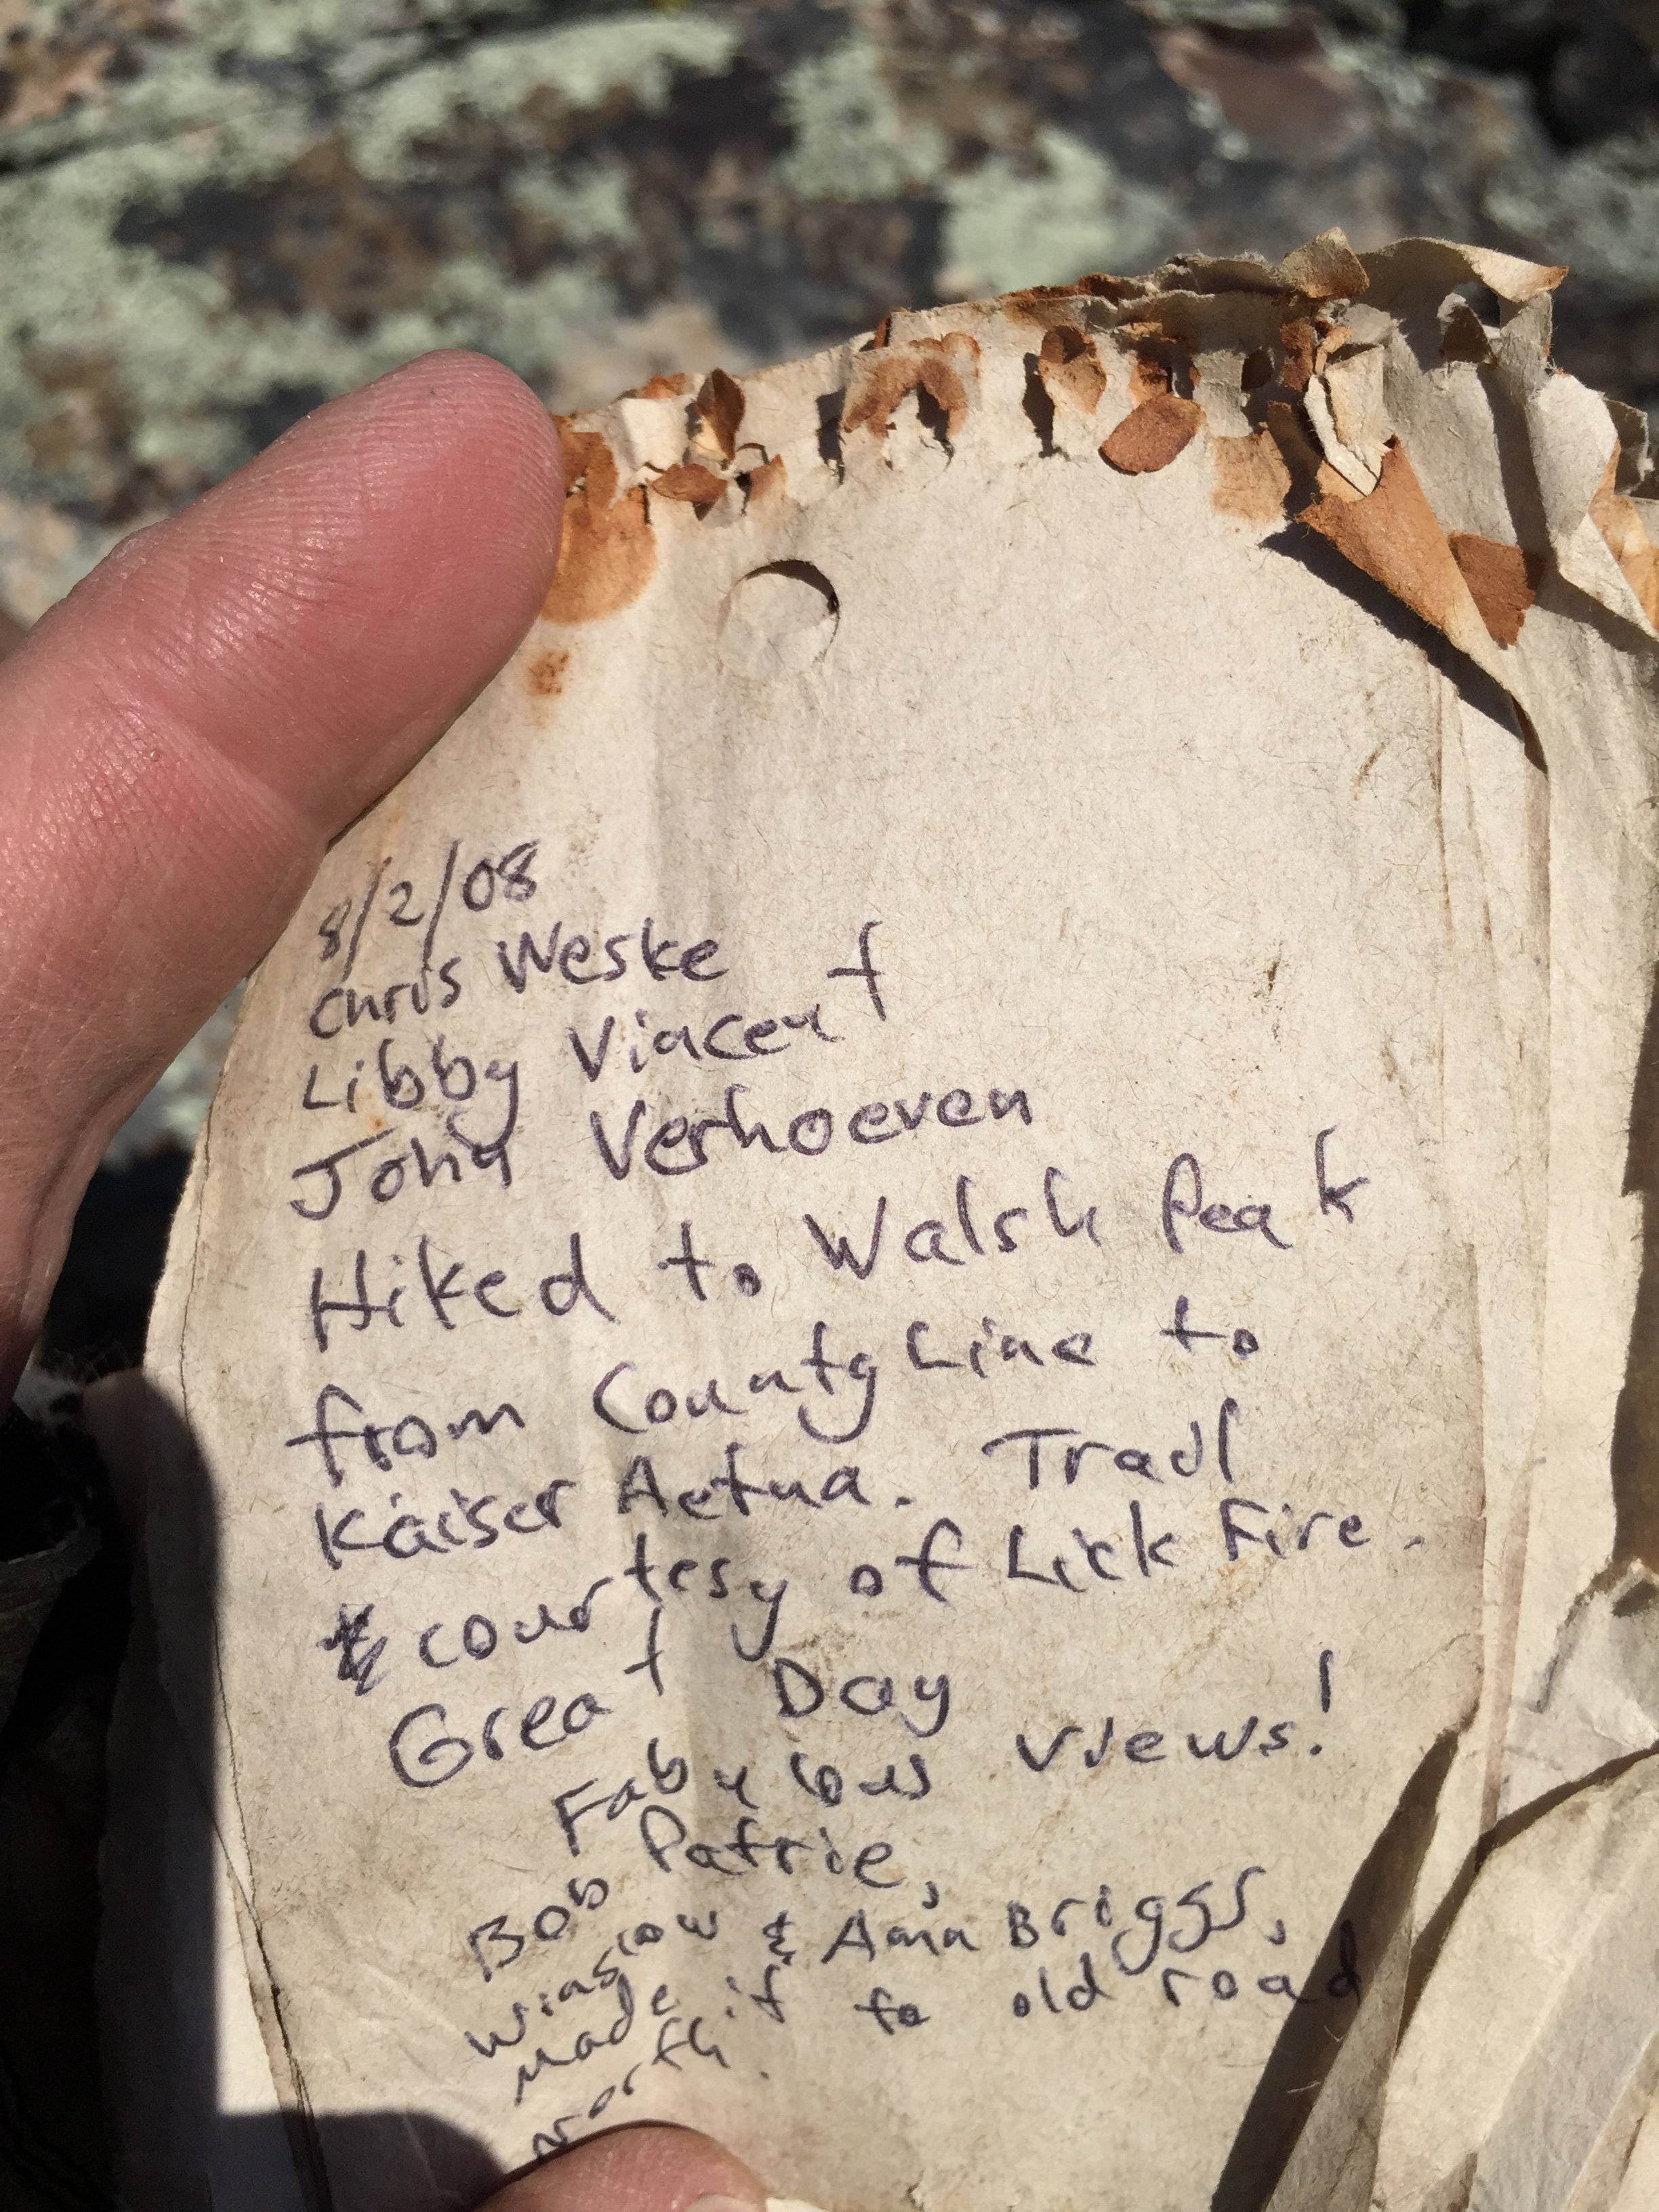 8/2/08
Chris Weske
Libby Vincent
John Verhoeven
Hiked to Walsh Peak
from County Line to
Kaiser Aetna. Trail
courtesy of Lick Fire.
Great Day
Fabulous views!
Bob Patrie,
Winslow & Ann Briggs,
made it to old road
north.